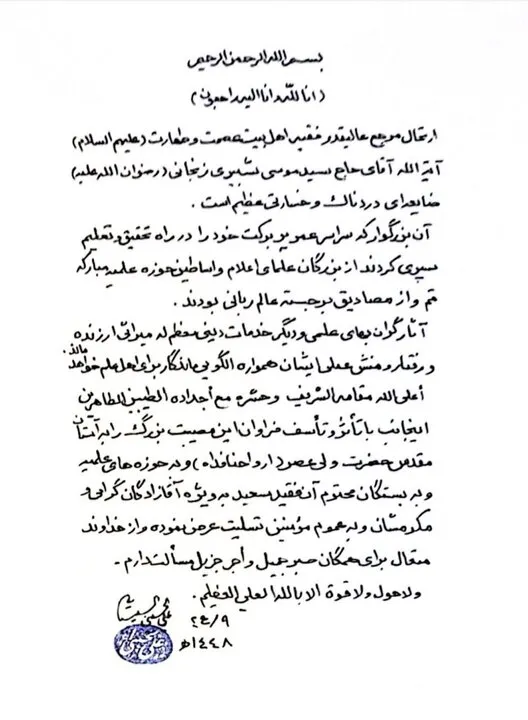 بسم الله الرحمن الرحیم
(انا لله وانا الیه راجعون)
ارتحال مرجع عالیقدر فقیه اهل بیت عصمت و طهارت (علیهم السلام)
آیة الله آقای حاج سید موسی شبیری زنجانی (رضوان الله علیه)
ضایعه‌ای دردناک و خسارتی عظیم است.
آن بزرگوار که سراسر عمر پربرکت خود را در راه تحقیق و تعلیم
سپری کردند از بزرگان علمای اعلام و اساطین حوزه علمیه مبارکه
قم و از مصادیق برجسته عالم ربانی بودند.
آثار گران بهای علمی و دیگر خدمات دینی معظم له میراثی ارزنده
و رفتار و منش عملی ایشان همواره الگویی ماندگار برای اهل علم خواهد ماند.
أعلی الله مقامه الشریف وحشره مع أجداده الطیبین الطاهرین
اینجانب با تأثر و تأسف فراوان این مصیبت بزرگ را به آستان
مقدس حضرت ولی عصر (ارواحنا فداه) و به حوزه های علمیه
و به بستگان محترم آن فقید سعید به ویژه آقازادگان گرامی و
مکرمشان و به عموم مؤمنین تسلیت عرض نموده و از خداوند
متعال برای همگان صبر جمیل و أجر جزیل مسألت دارم.
ولا حول ولا قوة الا بالله العلي العظیم.
علي الحسیني السیستاني
٢٤/٩
١٤٤٨هـ